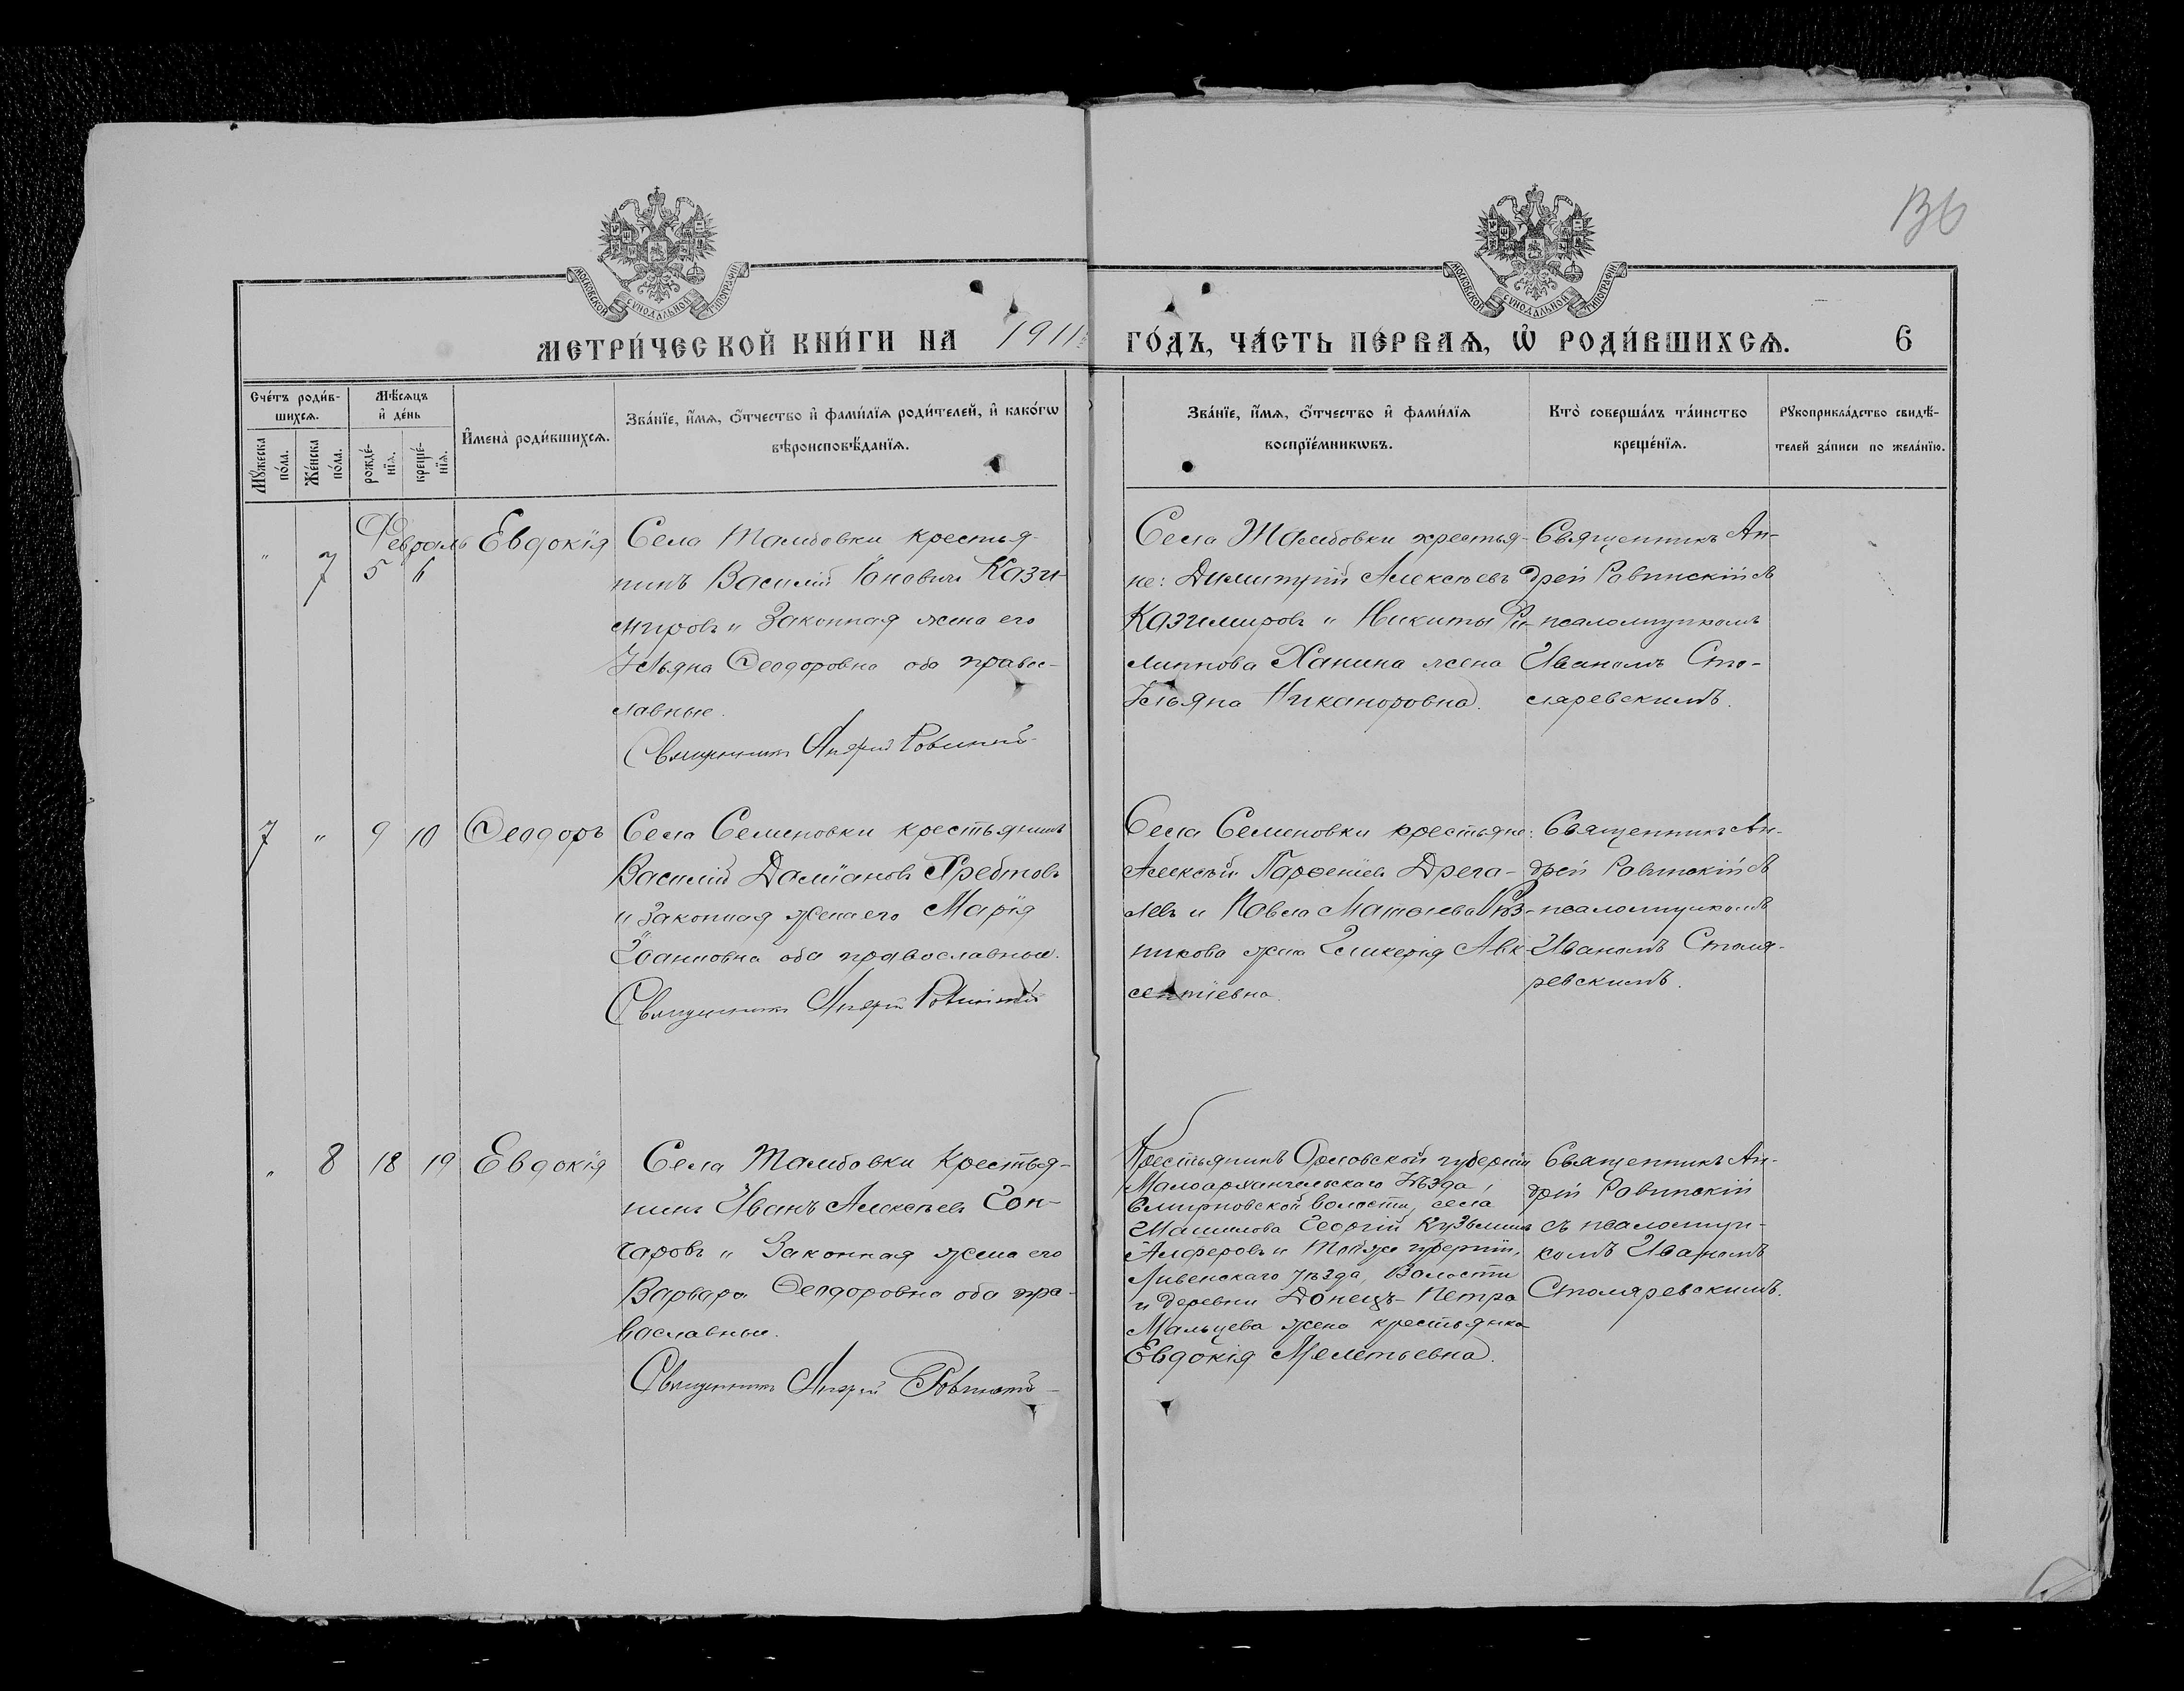 136
МОСКОВСКОЙ СУНОДАЛЬНОЙ ТИПОГРАФІИ
МОСКОВСКОЙ СУНОДАЛЬНОЙ ТИПОГРАФІИ
МЕТРИ́ЧЕСКОЙ КНИ́ГИ НА 1911
ГО́ДЪ, ЧА́СТЬ ПЕ́РВАѦ, Ѽ РОДИ́ВШИХСѦ. 6
Сче́тъ роди́в-
шихсѧ.
Мѣ́сѧцъ
и҆ де́нь
Мꙋ́жеска
по́ла.
Же́нска
по́ла.
рожде́-
нїѧ.
креще́-
нїѧ.
И҆мена̀ роди́вшихсѧ.
Зва́нїе, и҆́мѧ, ѻ҆́тчество и҆ фами́лїѧ роди́телей, и҆ како́гѡ
вѣроисповѣ́данїѧ.
Зва́нїе, и҆́мѧ, ѻ҆́тчество и҆ фами́лїѧ
воспрїе́мникѡвъ.
Кто̀ соверша́лъ та́инство
креще́нїѧ.
Рꙋкоприкла́дство свидѣ́-
телей за́писи по жела́нїю.
Февраль
" 7 5 6 Евдокія
Села Тамбовки крестья-
нинъ Василій Іоновъ Кази-
мировъ и Законная жена его
Ульяна Ѳеодоровна оба правос-
лавные.
Священникъ Андрей Ровинскій
Села Тамбовки крестья-
не: Димитрій Алексѣевъ
Казимировъ и Никиты Фи-
липпова Ханина жена
Ульяна Никаноровна.
Священникъ Ан-
дрей Ровинскій съ
псаломщикомъ
Иваномъ Сто-
ляревскимъ.
7 " 9 10 Ѳеодоръ
Села Семеновки крестьянинъ
Василій Даміановъ Хребтовъ
и законная жена его Марія
Іоанновна оба православные.
Священникъ Андрей Ровинскій
Села Семеновки крестьяне:
Алексѣй Парѳеніевъ Дрега-
левъ и Павла Матѳіева Рѣз-
никова жена Гликерія Авк-
сентіевна.
Священникъ Ан-
дрей Ровинскій съ
псаломщикомъ
Иваномъ Столя-
ревскимъ.
" 8 18 19 Евдокія
Села Тамбовки Крестья-
нинъ Иванъ Алексѣевъ Гон-
чаровъ и Законная жена его
Варвара Ѳеодоровна оба пра-
вославные.
Священникъ Андрей Ровинскій
Крестьянинъ Орловской губерніи
Малоархангельскаго Уѣзда,
Смирновской волости, села
Георгій Кузьминъ
Алферовъ и Той же губерніи,
Ливенскаго уѣзда, Волости
и деревни Донецъ - Петра
Мальцева жена крестьянка
Евдокія Мелетьевна.
Священникъ Ан-
дрей Ровинскій
съ псаломщи-
комъ Иваномъ
Столяревскимъ.